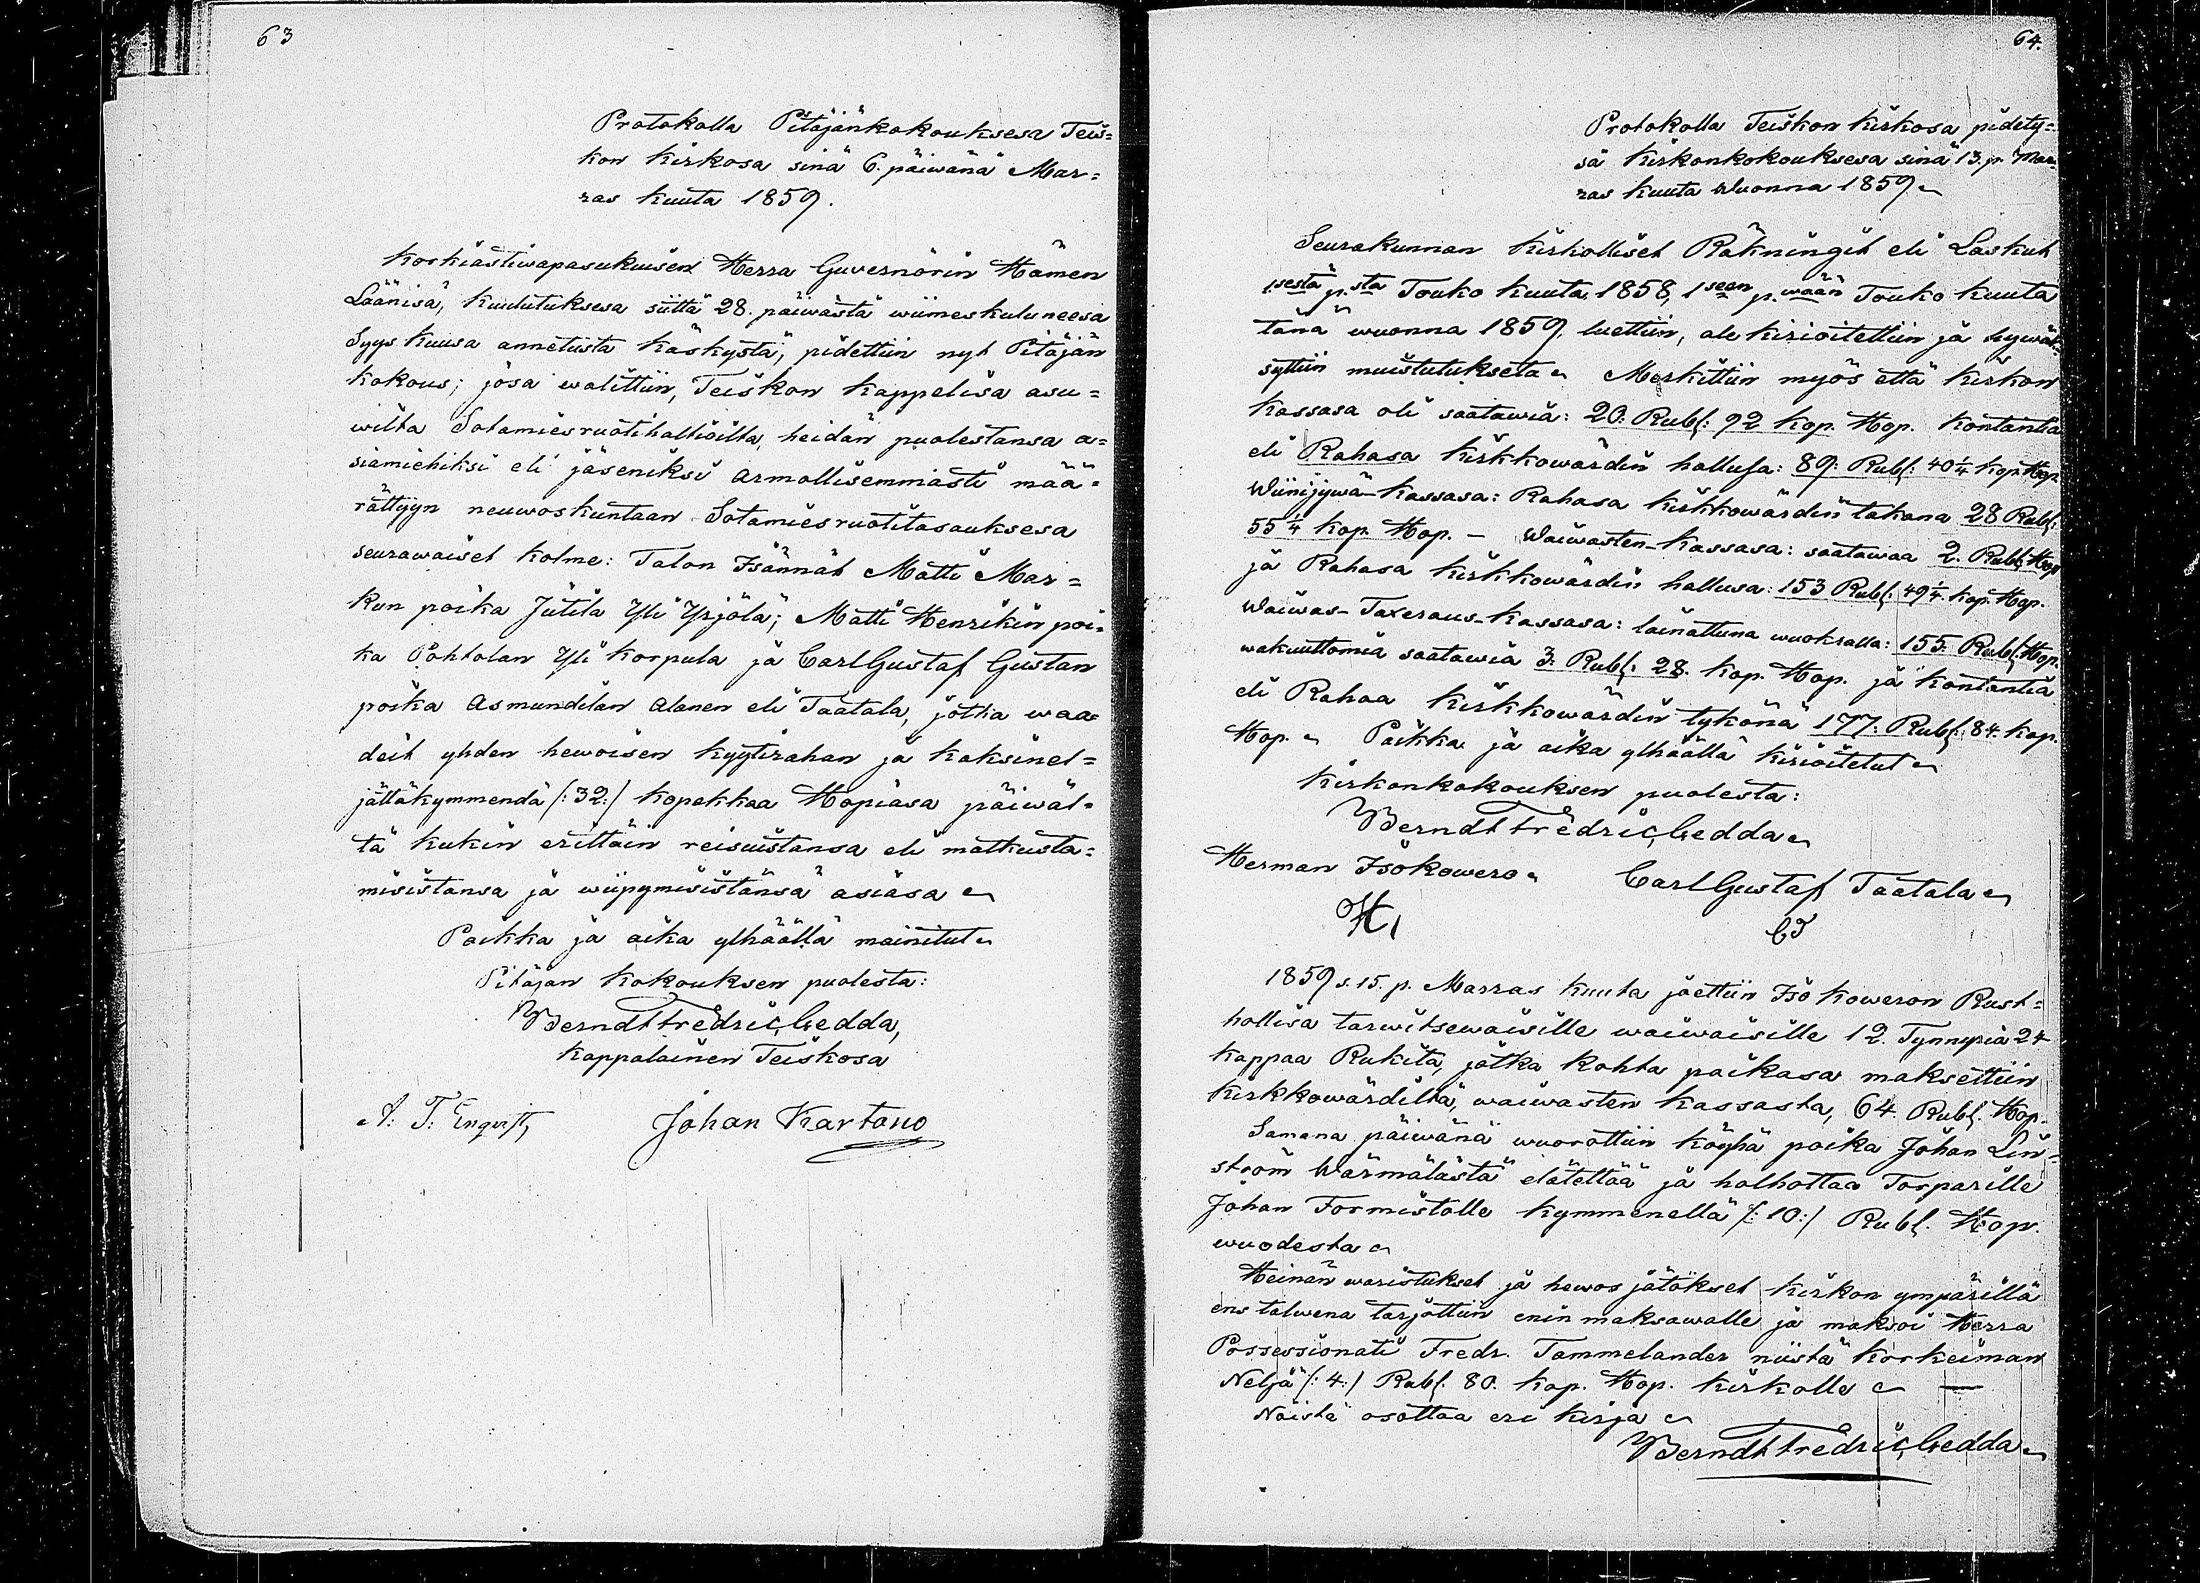 63
Protokolla Pitäjänkokouksesa Teis=
kon kirkosa sinä 6. päiwänä Mar=
ras kuuta 1859.
Korkiastiwapasukuisen Herra Guvernörin Hämen
Läänisä, kuulutuksesa siittä 28. päiwästä wiimeskuluneesa
Syys kuusa annetusta käskystä, pidettiin nyt Pitäjän
kokous; josa walittiin, Teiskon kappelisa asu=
wilta Sotamiesruotihaltioilta, heidän puolestansa a=
siamiehiksi eli jäseniksi armollisemmasti mää=
rättyyn neuwoskuntaan Sotamiesruotitasauksesa
seurawaiset kolme: Talon Isännät Matti Mar=
kun poika Jutila Yli Yrjölä; Matti Henrikin poi=
ka Pohtolan Yli Korpula ja Carl Gustaf Gustan
poika Asmundilan Alanen eli Taatala, jotka waa=
deit yhden hewoisen kyytirahan ja kaksinel=
jättäkymmendä /:32:/ kopekkaa Hopiasa päiwäl=
tä kukin erittäin reisuistansa eli matkusta=
misistansa ja wiipymisistänsä asiasa
Paikka ja aika ylhäällä mainitut
Pitäjän kokouksen puolesta:
Berndt Fredric Gedda,
Kappalainen Teiskosa
A: T: Enqvist, Johan Kartano
64.
Protokolla Teiskon kirkosa pidety=
sä kirkonkokouksesa sinä 13. p. Mar=
ras kuuta wuonna 1859
Seurakunnan kirkolliset Räkningit eli Laskut
1sestä p.stä Touko kuuta 1858, 1seen p.wään Touko kuuta
tänä wuonna 1859, luettiin, ale kirioitettiin ja hywäk=
syttiin muistutukseta Merkittiin myös että kirkon
kassasa oli saatawia: 20: Rubl: 92 kop. Hop. kontantia
eli Rahasa kirkkowärdin hallusa: 89: Rubl: 40 1/4 kop. Hop
Wiinijywä-kassasa: Rahasa kirkkowärdin takana 28 Rubl:
55 1/4 kop. Hop. - Waiwasten-kassasa: saatawaa 2. Rubl. Hop
ja Rahasa kirkkowärdin hallusa: 153 Rubl: 49 1/4. kop. Hop.
Waiwas-Taxeraus-kassasa: lainattuna wuokralla: 155: Rubl. Hop.
wakuuttomia saatawia 3: Rubl: 28. kop. Hop. ja kontantia
eli Rahaa kirkkowärdin tykönä 177: Rubl: 84. kop.
Hop. Paikka ja aika ylhäällä kirioitetut
kirkonkokouksen puolesta:
Berndt Fredric Gedda
Herman Isokowero Carl Gustaf Taatala
HI CT
1859 s. 15. p. Marras kuuta jaettiin Iso koweron Rust=
hollisa tarwitsewaisille waiwaisille 12. Tynnyriä 24
kappaa Rukiita, jotka kohta paikasa maksettiin
kirkkowärdiltä, waiwasten kassasta, 64. Rubl. Hop.
Samana päiwänä wuorottiin köyhä poika Johan Lin=
ström Wärmälästä elätettää ja holhottaa Torparille
Johan Formistolle kymmenellä /:10:/ Rubl. Hop.
wuodesta
Heinän waristukset ja hewos jätökset kirkon ympärillä
ens talwena tarjottiin enin maksawalle ja maksoi Herra
Possessionati Fredr. Tammelander niistä korkeiman
Neljä /:4:/ Rubl: 80. kop. Hop. kirkolle
Näistä osottaa eri kirja
Berndt Fredric Gedda